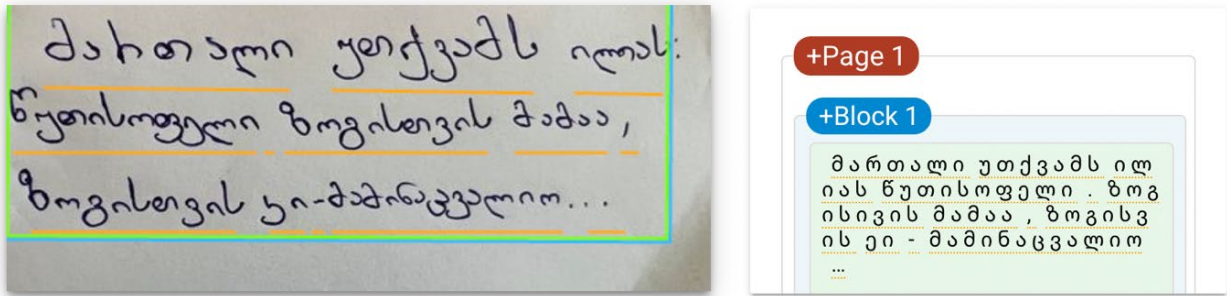 მართალი უთქვამს ილიას:
წუთისოფელი ზოგისთვის მამაა,
ზოგისთვის კი-მამინაცვალიო...
+Page 1
+Block 1
მართალი უთქვამს ილ
იას წუთისოფელი . ზოგ
ისივის მამაა , ზოგისვ
ის ეი - მამინაცვალიო
...